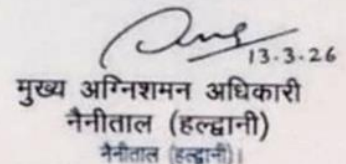 13.3.26
मुख्य अग्निशमन अधिकारी
नैनीताल (हल्द्वानी)
नैनीताल (हल्द्वानी)।